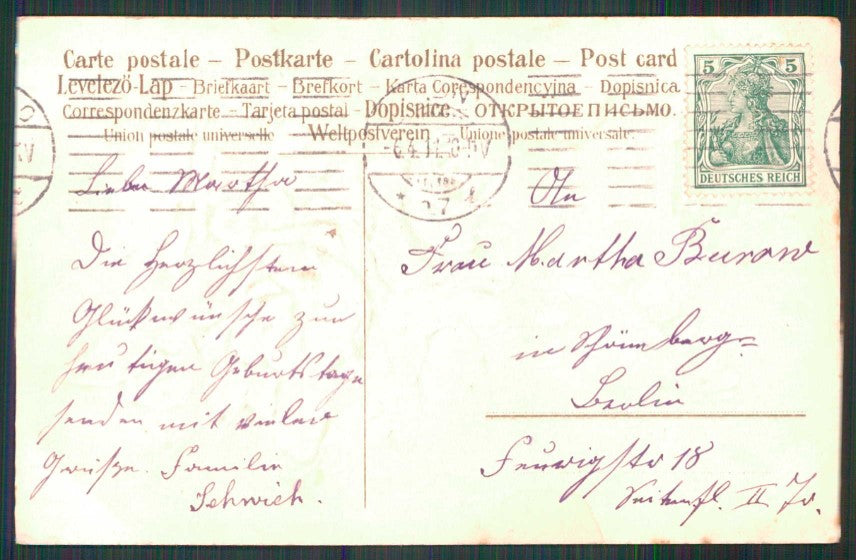 Carte postale – Postkarte – Cartolina postale – Post card
Levelező-Lap – Briefkaart – Brefkort – Karta Correspondencyjna – Dopisnica
Correspondenzkarte – Tarjeta postal – Dopisnice – ОТКРЫТОЕ ПИСЬМО.
Union postale universelle Weltpostverein Unione postale universale.
5 5
DEUTSCHES REICH
6.4.11
Liebe Martha
Die Herzlichsten
Glückwünsche zum
heutigen Geburtstage
senden mit vielen
Grüßen Familie
Schwich.
An
Frau Martha Burow
in Schöneberg-
Berlin
Feurigstr 18
Seitenfl. II Tr.